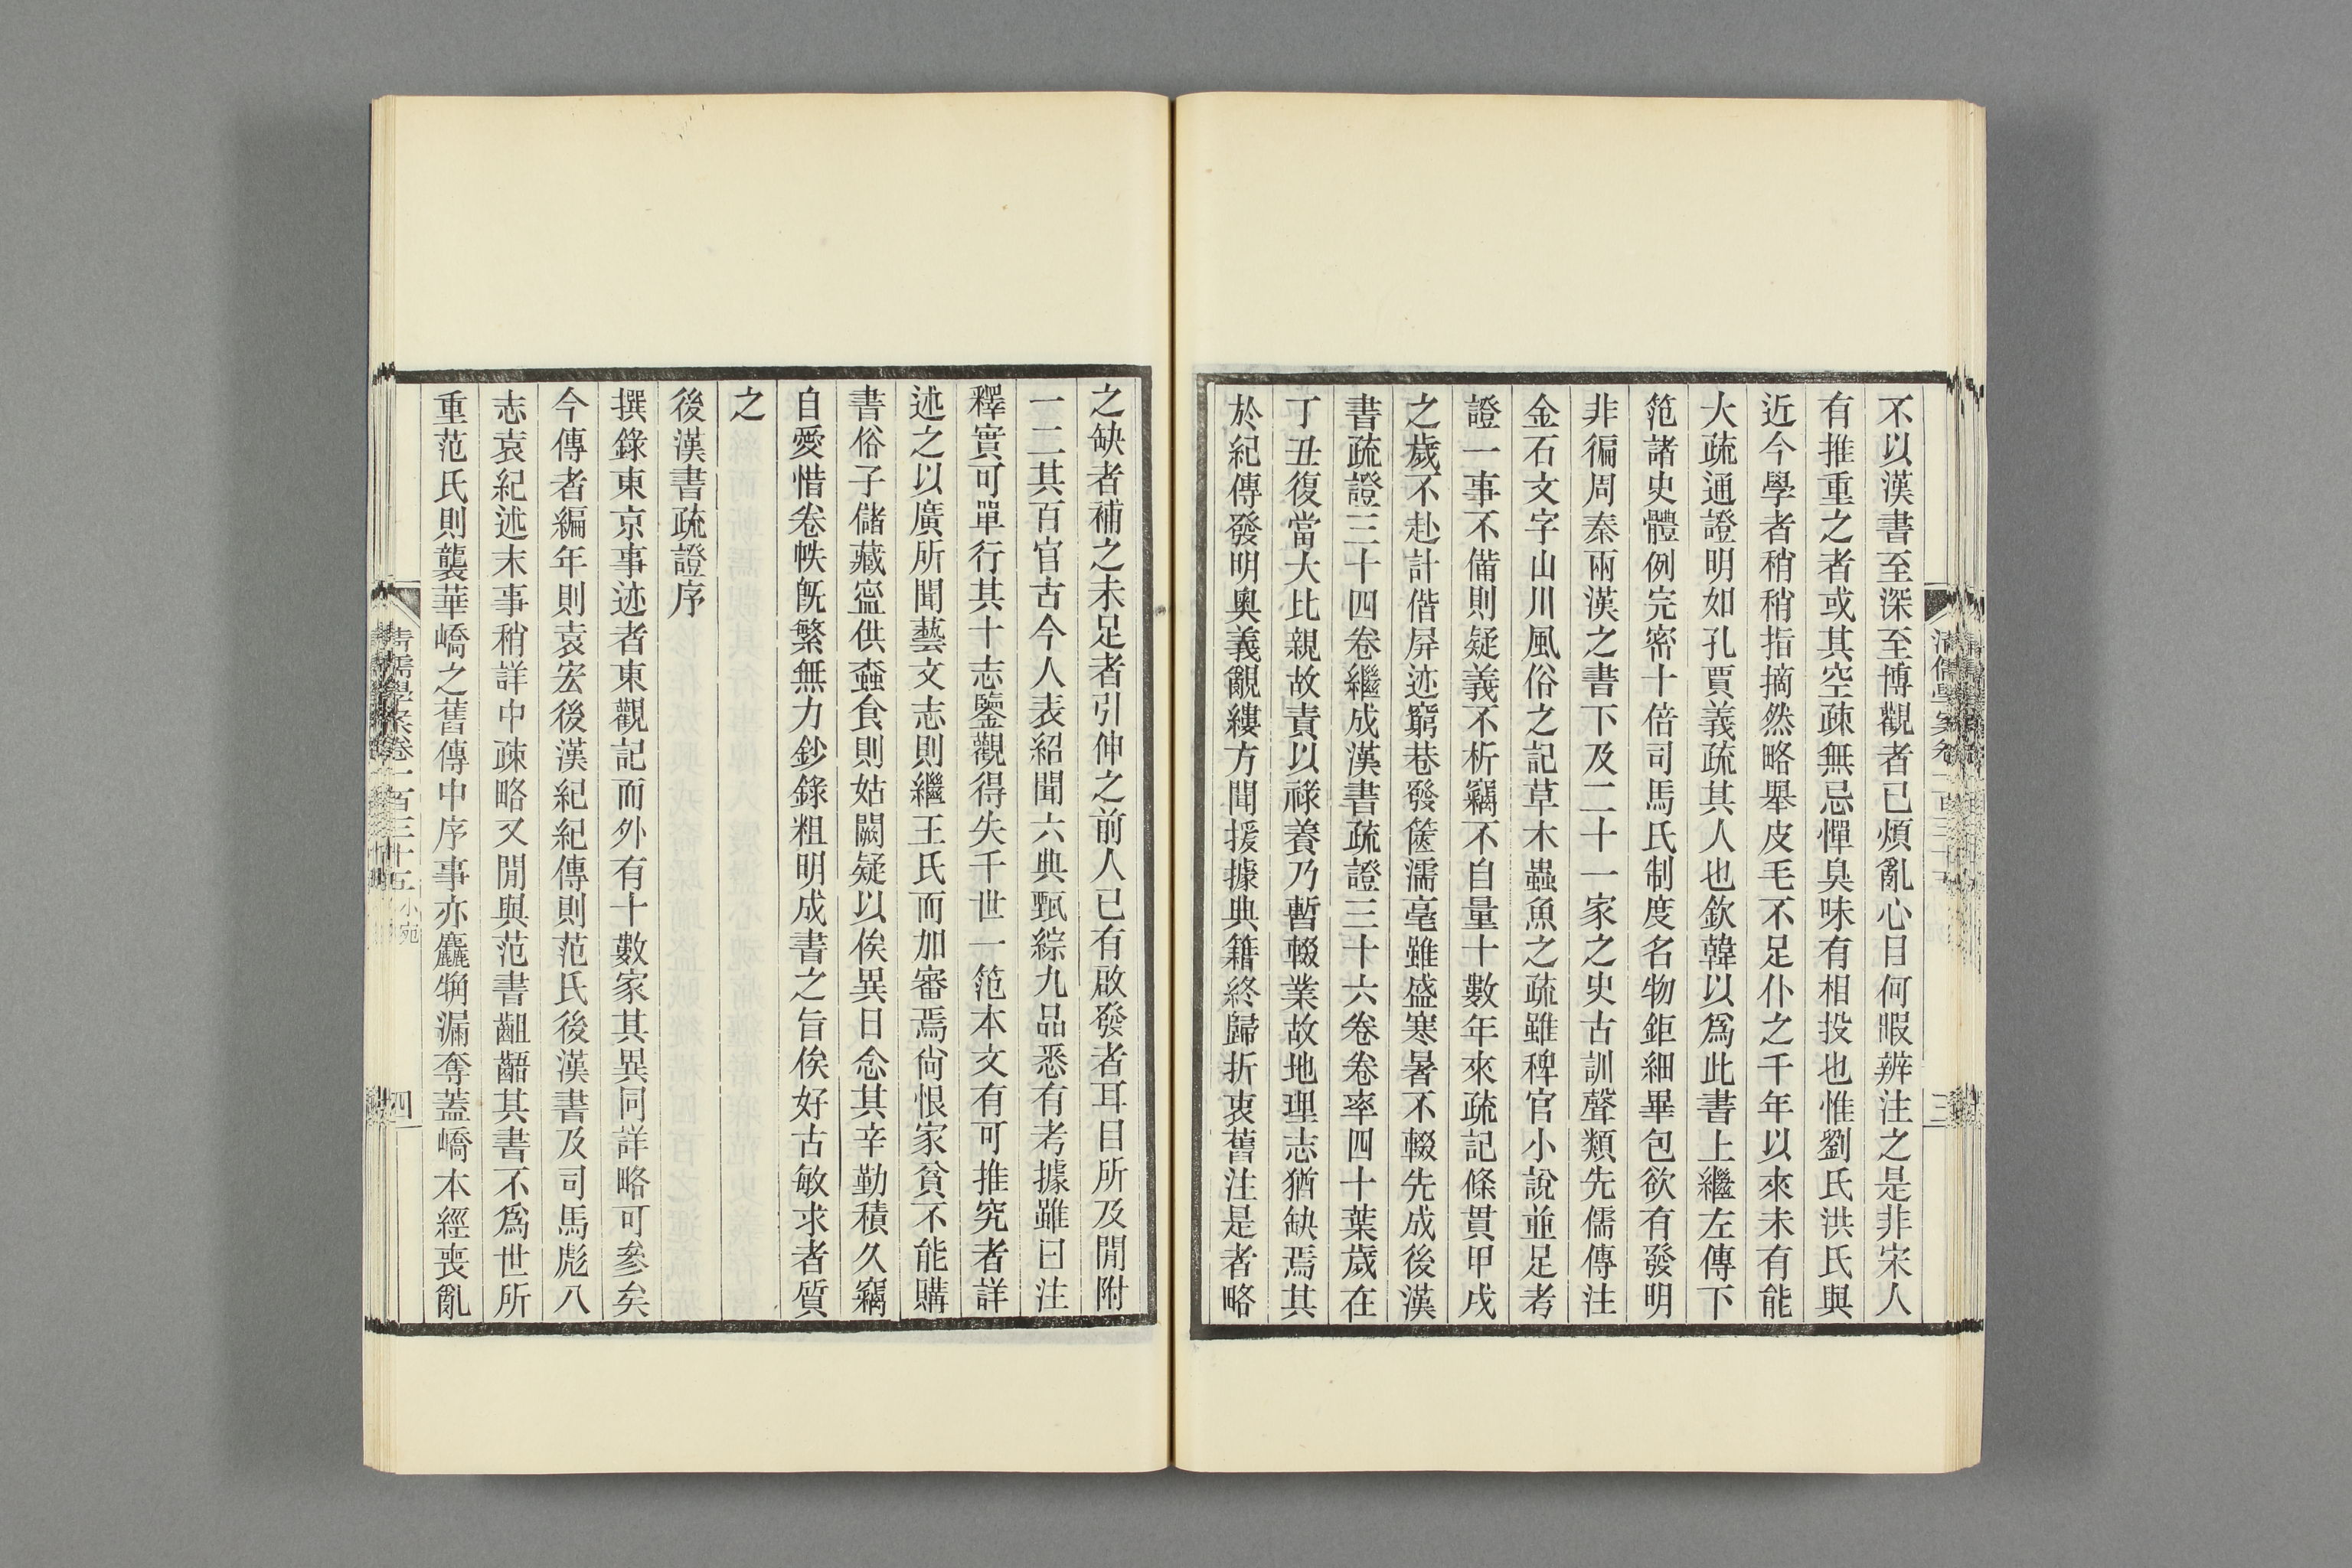 不以漢書至深至博觀者已煩亂心目何暇辨注之是非宋人
有推重之者或其空疎無忌憚臭味有相投也惟劉氏洪氏與
近今學者稍稍指摘然略舉皮毛不足仆之千年以來未有能
大疏通證明如孔賈義疏其人也欽韓以爲此書上繼左傳下
笵諸史體例完密十倍司馬氏制度名物鉅細畢包欲有發明
非徧周秦兩漢之書下及二十一家之史古訓聲類先儒傳注
金石文字山川風俗之記草木蟲魚之疏雖稗官小說並足考
證一事不備則疑義不析竊不自量十數年來疏記條貫甲戌
之歲不赴計偕屏迹窮巷發篋濡毫雖盛寒暑不輟先成後漢
書疏證三十四卷繼成漢書疏證三十六卷卷率四十葉歲在
丁丑復當大比親故責以祿養乃暫輟業故地理志猶缺焉其
於紀傳發明奧義覼縷方聞援據典籍終歸折衷舊注是者略
清儒學案卷一百三十五
三
之缺者補之未足者引伸之前人已有啟發者耳目所及閒附
一二其百官古今人表紹聞六典甄綜九品悉有考據雖曰注
釋實可單行其十志鑒觀得失千世一笵本文有可推究者詳
述之以廣所聞藝文志則繼王氏而加審焉尙恨家貧不能購
書俗子儲藏寍供蟗食則姑闕疑以俟異日念其辛勤積久竊
自愛惜卷帙旣繁無力鈔錄粗明成書之旨俟好古敏求者質
之
後漢書疏證序
撰錄東京事迹者東觀記而外有十數家其異同詳略可參矣
今傳者編年則袁宏後漢紀紀傳則范氏後漢書及司馬彪八
志袁紀述末事稍詳中疎略又閒與范書齟齬其書不爲世所
重范氏則襲華嶠之舊傳中序事亦麤觕漏奪蓋嶠本經喪亂
清儒學案卷一百三十五 小宛
四